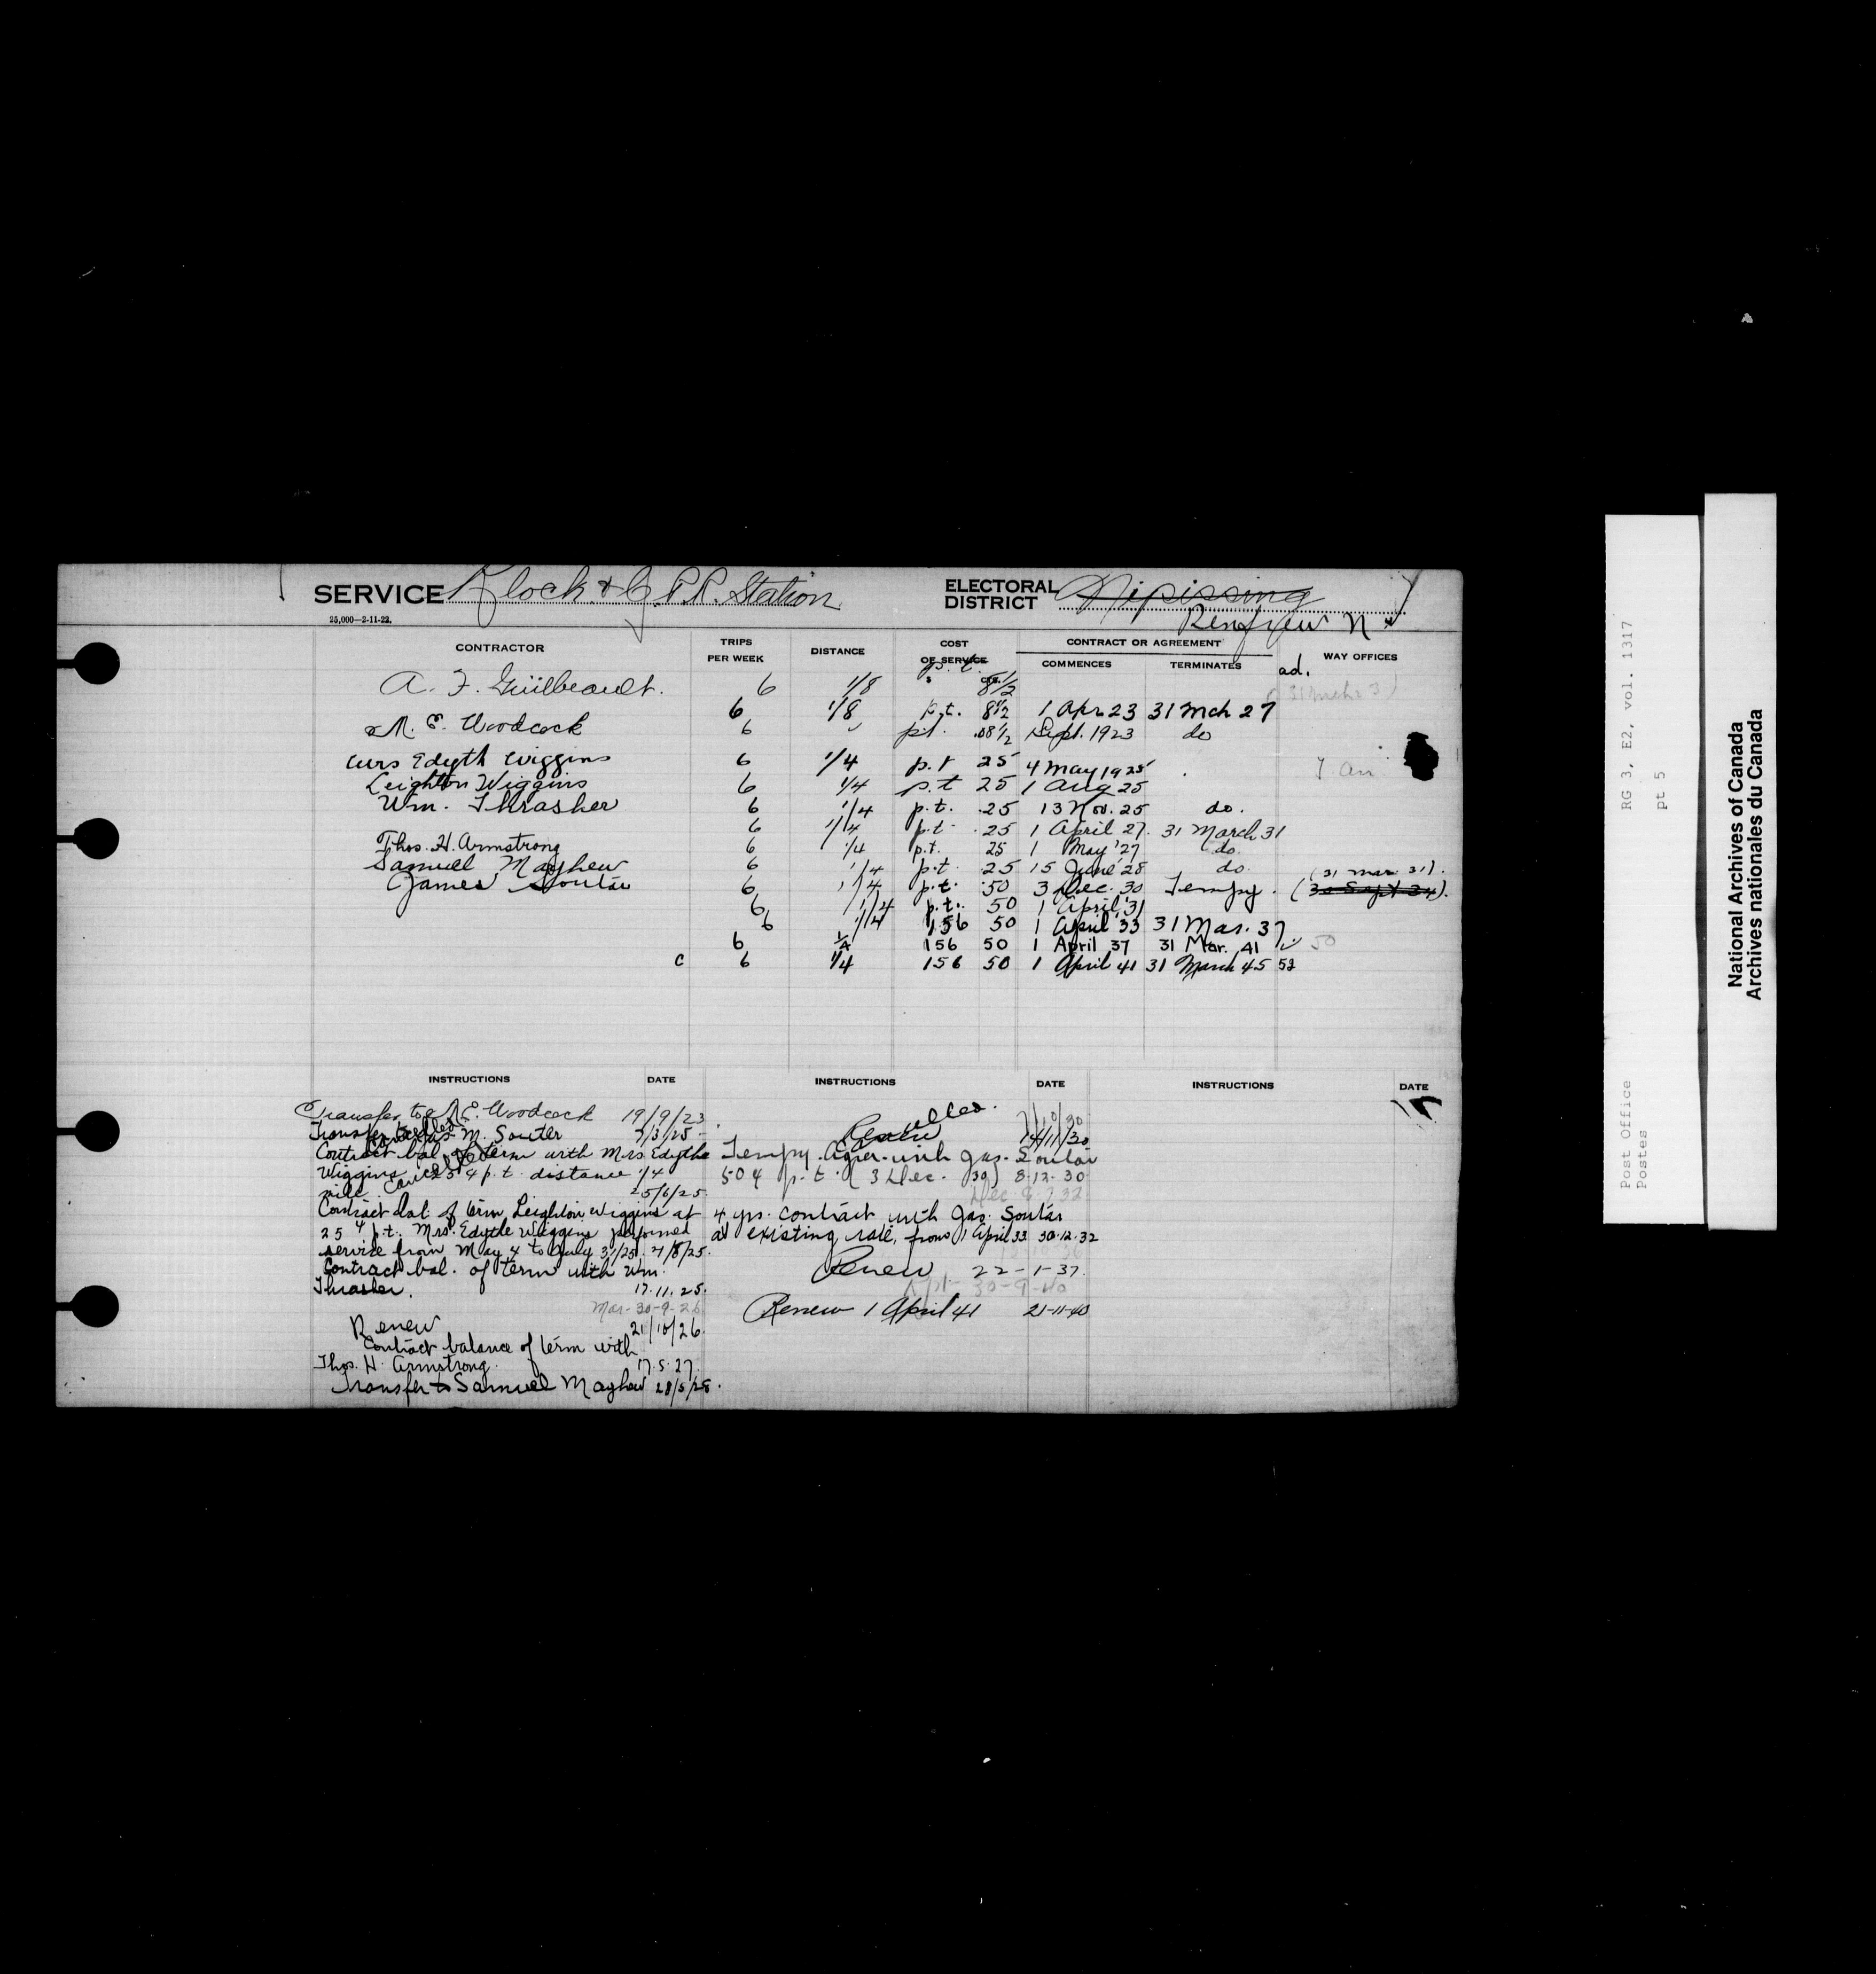 SERVICE Klock & C.P.R. Station
ELECTORAL DISTRICT Nipissing
Renfrew N
25,000—2-11-22.
CONTRACTOR TRIPS PER WEEK DISTANCE COST OF SERVICE CONTRACT OR AGREEMENT COMMENCES TERMINATES WAY OFFICES
p.t. ad.
A. F. Guilbeault. 6 1/8 8 1/2
6 1/8 p.t. 8 1/2 1 Apr 23 31 Mch 27
M. E. Woodcock 6 " p.t. .08 1/2 Sept. 1923 do
Mrs Edyth Wiggins 6 1/4 p.t 25 4 May 1925
Leighton Wiggins 6 1/4 p.t 25 1 Aug 25
Wm. Thrasher 6 1/4 p.t. .25 13 Nov. 25 do.
6 1/4 p.t. .25 1 April 27. 31 March 31
Thos. H. Armstrong 6 1/4 p.t. 25 1 May '27 do.
Samuel Mayhew 6 1/4 p.t. .25 15 June '28 do.
(31 Mar. 31).
James Soutar 6 1/4 p.t. .50 3 Dec. 30 Tempy. (30 Sept 34).
6 1/4 p.t. 50 1 April '31
6 1/4 156 50 1 April '33 31 Mar. 37
6 1/4 156 50 1 April 37 31 Mar. 41 50
c 6 1/4 156 50 1 April 41 31 March 45 52
INSTRUCTIONS DATE INSTRUCTIONS DATE INSTRUCTIONS DATE
Transfer to M. E. Woodcock 19/9/23
Transfer to Jas M. Souter 7/3/25
Cancelled
Contract bal of term with Mrs Edythe
Wiggins 25 ¢ p.t. distance 1/4
mile. 25/6/25
Contract bal. of term Leighton Wiggins at
25 ¢ p.t. Mrs. Edythe Wiggins performed
service from May 4 to July 31/25. 4/8/25.
Contract bal. of term with Wm.
Thrasher. 17.11.25.
Mar-30-9-26
Renew 21/10/26
Contract balance of term with
Thos. H. Armstrong. 17.5.27.
Transfer to Samuel Mayhew 28/5/28.
Renew 14/11/30
Tempy. Agree. with Jas. Soutar
50 ¢ p.t. (3 Dec. 30) 8-12-30
4 yrs. contract with Jas. Soutar
at existing rate, from 1 April 33 30-12-32
Renew 22-1-37.
30-9-40
Renew 1 April 41 21-11-40
Post Office
Postes
RG 3, E2, vol. 1317
pt 5
National Archives of Canada
Archives nationales du Canada